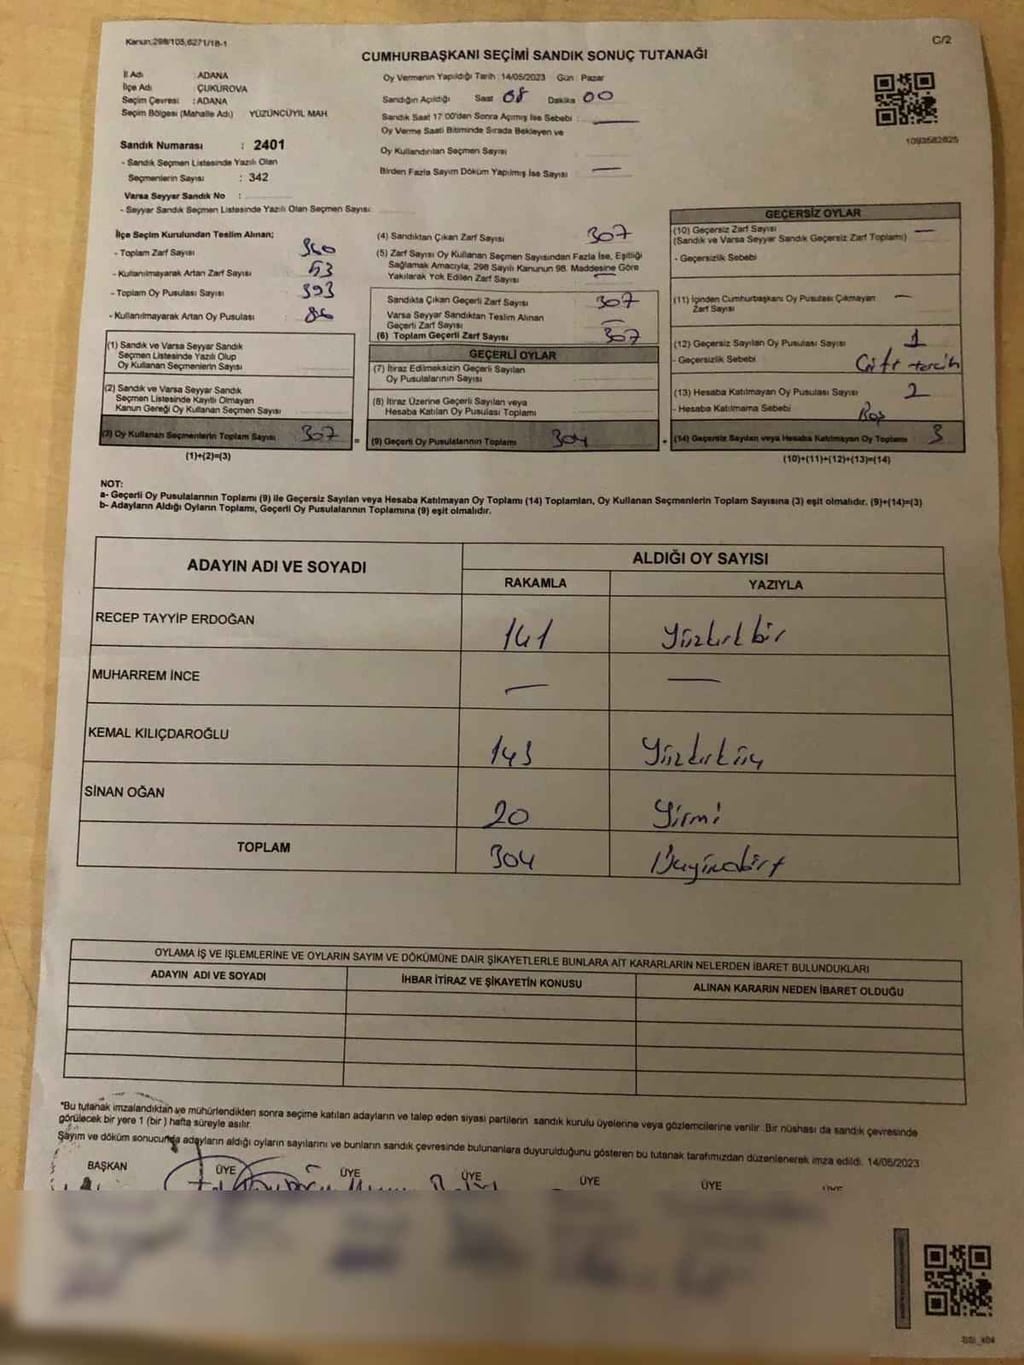 Kanun:298/105,6271/18-1
C/2
CUMHURBAŞKANI SEÇİMİ SANDIK SONUÇ TUTANAĞI
İl Adı : ADANA
İlçe Adı : ÇUKUROVA
Seçim Çevresi : ADANA
Seçim Bölgesi (Mahalle Adı) YÜZÜNCÜYIL MAH.
Oy Vermenin Yapıldığı Tarih : 14/05/2023 Gün : Pazar
Sandığın Açıldığı Saat 08 Dakika 00
Sandık Saat 17:00'dan Sonra Açımış İse Sebebi :
Oy Verme Saati Bitiminde Sırada Bekleyen ve
Oy Kullandırılan Seçmen Sayısı
Birden Fazla Sayım Döküm Yapılmış İse Sayısı —
1093582625
Sandık Numarası : 2401
- Sandık Seçmen Listesinde Yazılı Olan
Seçmenlerin Sayısı : 342
Varsa Seyyar Sandık No :
- Seyyar Sandık Seçmen Listesinde Yazılı Olan Seçmen Sayısı:
İlçe Seçim Kurulundan Teslim Alınan;
- Toplam Zarf Sayısı 360
- Kullanılmayarak Artan Zarf Sayısı 53
- Toplam Oy Pusulası Sayısı 393
- Kullanılmayarak Artan Oy Pusulası 86
(1) Sandık ve Varsa Seyyar Sandık
Seçmen Listesinde Yazılı Olup
Oy Kullanan Seçmenlerin Sayısı
(2) Sandık ve Varsa Seyyar Sandık
Seçmen Listesinde Kayıtlı Olmayan
Kanun Gereği Oy Kullanan Seçmen Sayısı
(3) Oy Kullanan Seçmenlerin Toplam Sayısı 307
(1)+(2)=(3)
(4) Sandıktan Çıkan Zarf Sayısı 307
(5) Zarf Sayısı Oy Kullanan Seçmen Sayısından Fazla İse, Eşitliği
Sağlamak Amacıyla, 298 Sayılı Kanunun 98. Maddesine Göre
Yakılarak Yok Edilen Zarf Sayısı —
Sandıkta Çıkan Geçerli Zarf Sayısı 307
Varsa Seyyar Sandıktan Teslim Alınan
Geçerli Zarf Sayısı —
(6) Toplam Geçerli Zarf Sayısı 307
GEÇERLİ OYLAR
(7) İtiraz Edilmeksizin Geçerli Sayılan
Oy Pusulalarının Sayısı
(8) İtiraz Üzerine Geçerli Sayılan veya
Hesaba Katılan Oy Pusulası Toplamı
= (9) Geçerli Oy Pusulalarının Toplamı 304
GEÇERSİZ OYLAR
(10) Geçersiz Zarf Sayısı —
(Sandık ve Varsa Seyyar Sandık Geçersiz Zarf Toplamı)
- Geçersizlik Sebebi
(11) İçinden Cumhurbaşkanı Oy Pusulası Çıkmayan —
Zarf Sayısı
(12) Geçersiz Sayılan Oy Pusulası Sayısı 1
- Geçersizlik Sebebi Çift tercih
(13) Hesaba Katılmayan Oy Pusulası Sayısı 2
- Hesaba Katılmama Sebebi Boş
+ (14) Geçersiz Sayılan veya Hesaba Katılmayan Oy Toplamı 3
(10)+(11)+(12)+(13)=(14)
NOT:
a- Geçerli Oy Pusulalarının Toplamı (9) ile Geçersiz Sayılan veya Hesaba Katılmayan Oy Toplamı (14) Toplamları, Oy Kullanan Seçmenlerin Toplam Sayısına (3) eşit olmalıdır. (9)+(14)=(3)
b- Adayların Aldığı Oyların Toplamı, Geçerli Oy Pusulalarının Toplamına (9) eşit olmalıdır.
ADAYIN ADI VE SOYADI ALDIĞI OY SAYISI
RAKAMLA YAZIYLA
RECEP TAYYİP ERDOĞAN 141 Yüzkırkbir
MUHARREM İNCE — —
KEMAL KILIÇDAROĞLU 143 Yüzkırküç
SİNAN OĞAN 20 Yirmi
TOPLAM 304 Üçyüzdört
OYLAMA İŞ VE İŞLEMLERİNE VE OYLARIN SAYIM VE DÖKÜMÜNE DAİR ŞİKAYETLERLE BUNLARA AİT KARARLARIN NELERDEN İBARET BULUNDUKLARI
ADAYIN ADI VE SOYADI İHBAR İTİRAZ VE ŞİKAYETİN KONUSU ALINAN KARARIN NEDEN İBARET OLDUĞU
*Bu tutanak imzalandıktan ve mühürlendikten sonra seçime katılan adayların ve talep eden siyasi partilerin sandık kurulu üyelerine veya gözlemcilerine verilir. Bir nüshası da sandık çevresinde
görülecek bir yere 1 (bir) hafta süreyle asılır.
Sayım ve döküm sonucunda adayların aldığı oyların sayılarını ve bunların sandık çevresinde bulunanlara duyurulduğunu gösteren bu tutanak tarafımızdan düzenlenerek imza edildi. 14/05/2023
BAŞKAN ÜYE ÜYE ÜYE ÜYE ÜYE ÜYE